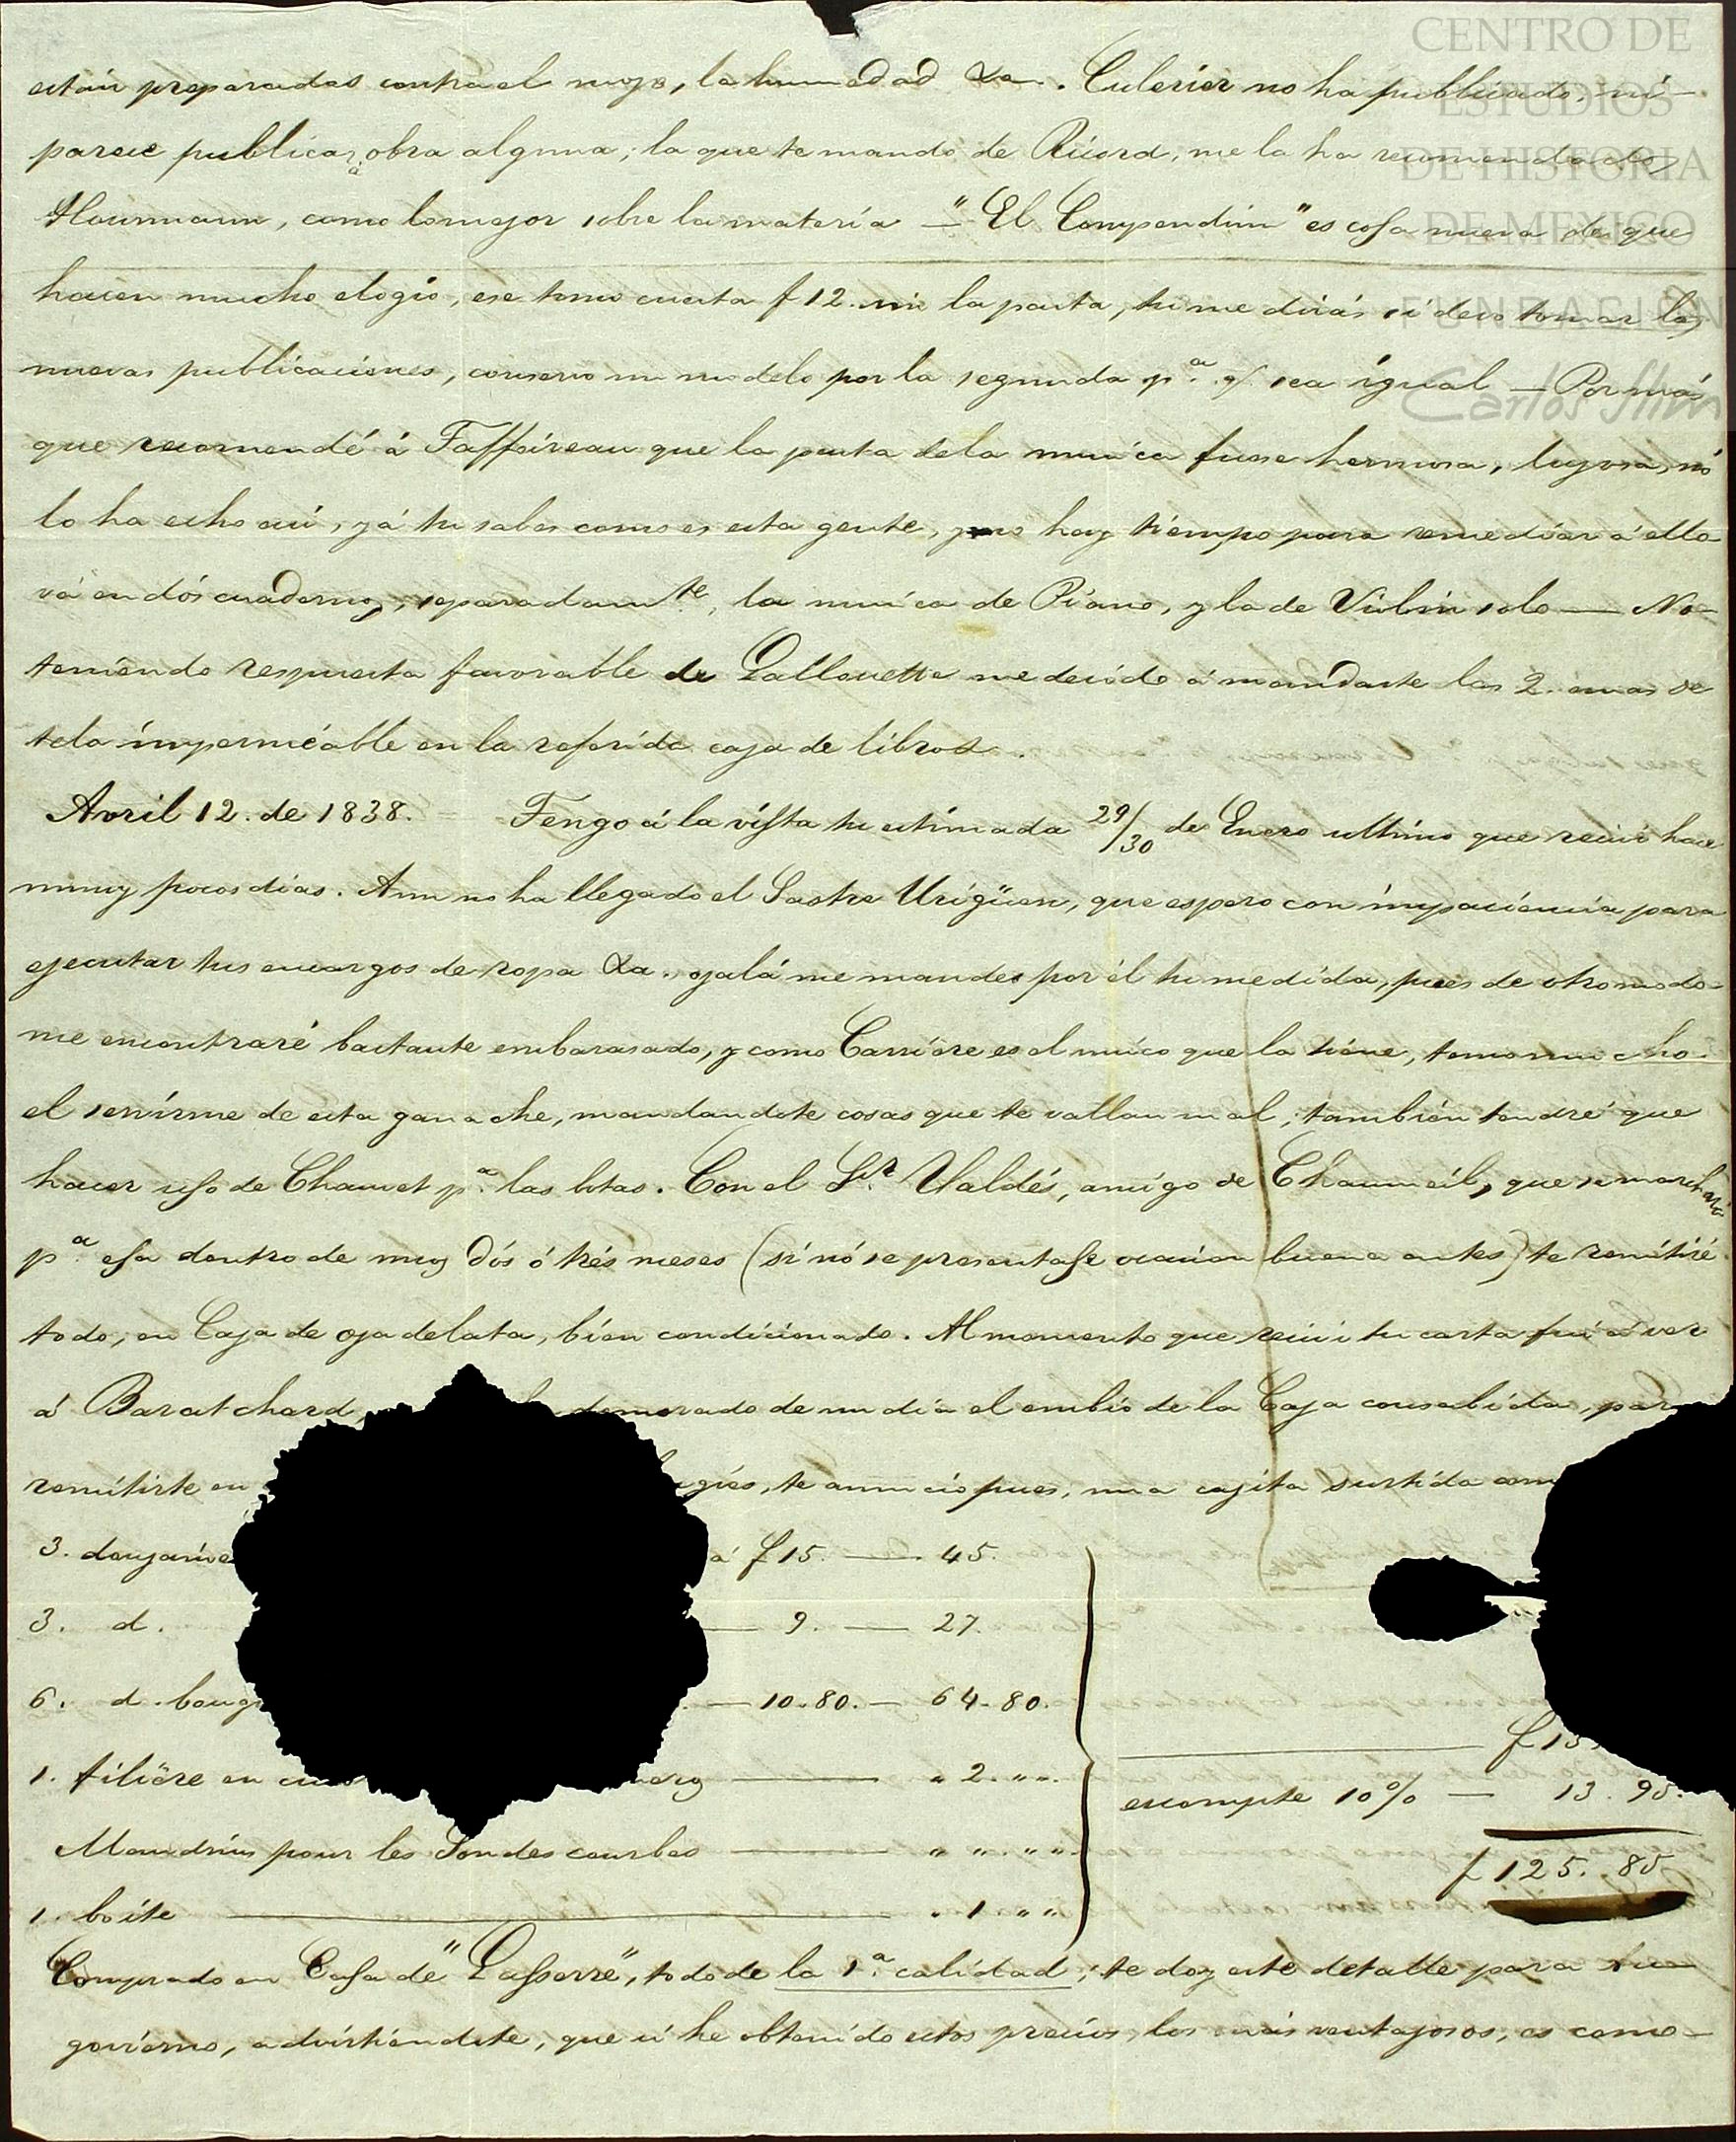 CENTRO DE
ESTUDIOS
DE HISTORIA
DE MEXICO
FUNDACIÓN
Carlos Slim
están preparadas contra el mojo, la humedad &a. Culerier no ha publicado, ni
parece publicará obra alguna; la que te mando de Ricord, me la ha recomendado
Hourmann, como lo mejor sobre la materia — "El Compendium" es cosa nueva de que
hacen mucho elogio, ese tomo cuesta f 12. sin la pasta, tu me dirás si devo tomar las
nuevas publicaciones, conservo un modelo por la segunda pª. qe. sea igual — Por más
que recomendé á Taffoireau que la pasta de la musica fuese hermosa, lujosa, nó
lo ha echo así, yá tu sabes como es esta gente, y no hay tiempo para remediar á ello
vá en dós cuadernos, separadamte., la musica de Piano, y la de Violin solo — No
teniendo respuesta favorable de Lallouette me decido á mandarte las 2. anas de
tela impermeable en la referida caja de libros.
Avril 12. de 1838. Tengo á la vista tu estimada 29/30 de Enero ultimo que recivi hace
muy pocos dias. Aun no ha llegado el Sastre Urigüen, que espero con impaciencia para
ejecutar tus encargos de ropa &a. ojalá me mandes por él tu medida, pues de otro modo
me encontraré bastante embarasado, y como Carriere es el unico que la tiene, temo mucho
el servirme de esta ganache, mandandote cosas que te vallan mal; también tendré que
hacer uso de Chauvet pª. las botas. Con el Sr. Valdés, amigo de Chaumeil, que se marchará
pª. esa dentro de muy dós ó trés meses (si nó se presentase ocasion buena antes) te remitiré
todo, en Caja de oja de lata, bien condicionado. Al momento que recivi tu carta fui á ver
á Baratchard, demorado de un dia el embío de la Caja consabida, para
remitirte en gies, te anuncio pues, una cajita surtida com
3. douzaine á f 15. — 45.
3. d. — 9. — 27.
6. d. boug — 10.80. — 64.80.
1. filière en cui — " 2. " ".
Mandrins pour les Sondes courbes — " " " "
1. boite — " 1. " "
f 13
escompte 10% — 13.95.
f 125.85
Comprado en Casa de "Lasserre", todo de la 1ª. calidad; te doy este detalle para tu
govierno, advirtiendote, que si he obtenido estos precios, los más ventajosos, es como